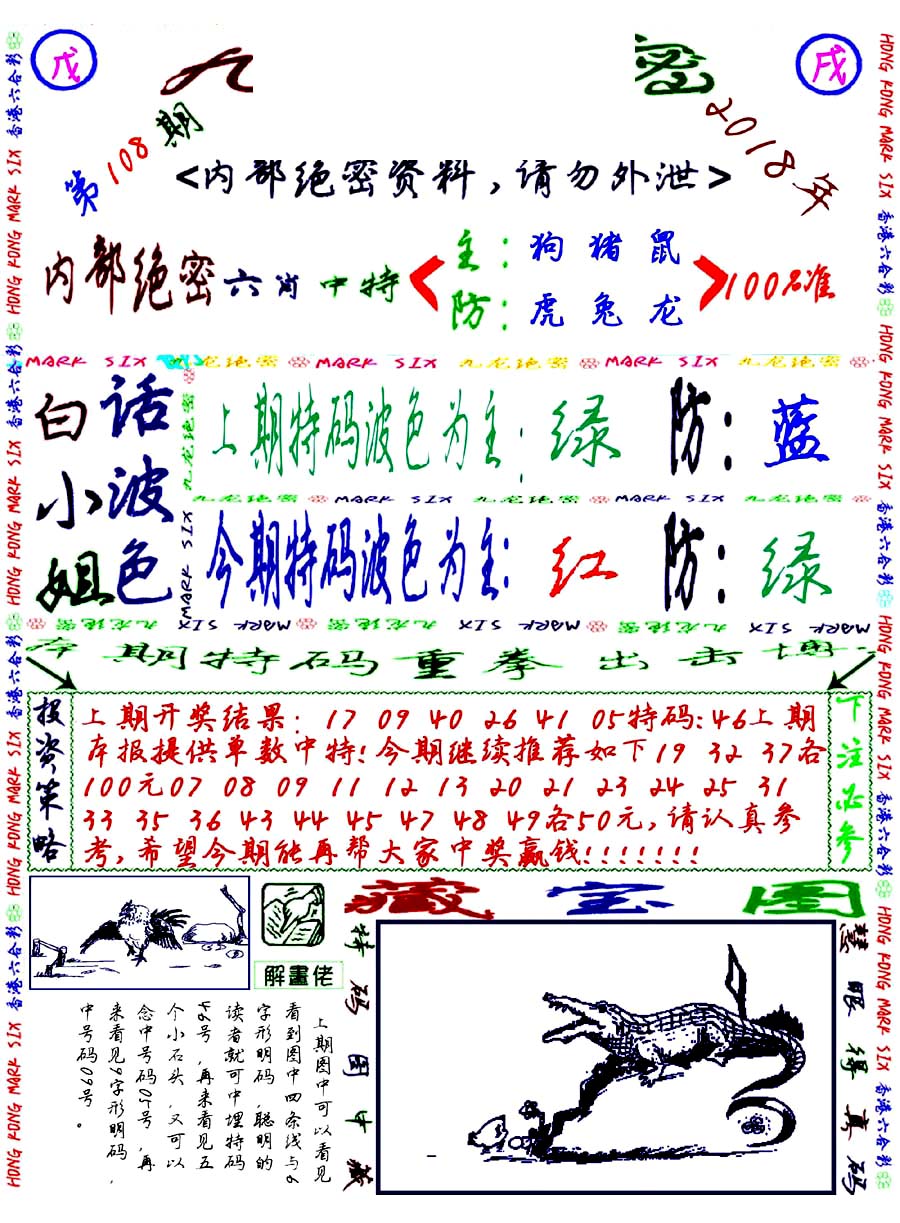 戊
九
密
戌
第108期
2018年
<内部绝密资料,请勿外泄>
内部绝密六肖中特
主:狗猪鼠
防:虎兔龙
100%准
MARK SIX 九龙绝密 MARK SIX 九龙绝密 MARK SIX 九龙绝密
白小姐
话波色
上期特码波色为主:绿 防:蓝
九龙绝密 MARK SIX 九龙绝密 MARK SIX 九龙绝密
今期特码波色为主:红 防:绿
九龙绝密 MARK SIX
MARK SIX 九龙绝密 MARK SIX 九龙绝密 MARK SIX 九龙绝密
本期特码重拳出击博
投资策略
上期开奖结果: 17 09 40 26 41 05特码:46上期
本报提供单数中特!今期继续推荐如下19 32 37各
100元07 08 09 11 12 13 20 21 23 24 25 31
33 35 36 43 44 45 47 48 49各50元,请认真参
考,希望今期能再帮大家中奖赢钱!!!!!!!
下注必参
解畫佬
藏宝图
上期图中可以看见
看到图中四条线与6
字形明码,聪明的
读者就可中埋特码
46号,再来看见五
个小石头,又可以
念中号码05号,再
来看见9字形明码,
中号码09号。
特码图中藏
慧眼得真码
HONG KONG MARK SIX 香港六合彩 HONG KONG MARK SIX 香港六合彩 HONG KONG MARK SIX 香港六合彩 HONG KONG MARK SIX 香港六合彩
HONG KONG MARK SIX 香港六合彩 HONG KONG MARK SIX 香港六合彩 HONG KONG MARK SIX 香港六合彩 HONG KONG MARK SIX 香港六合彩